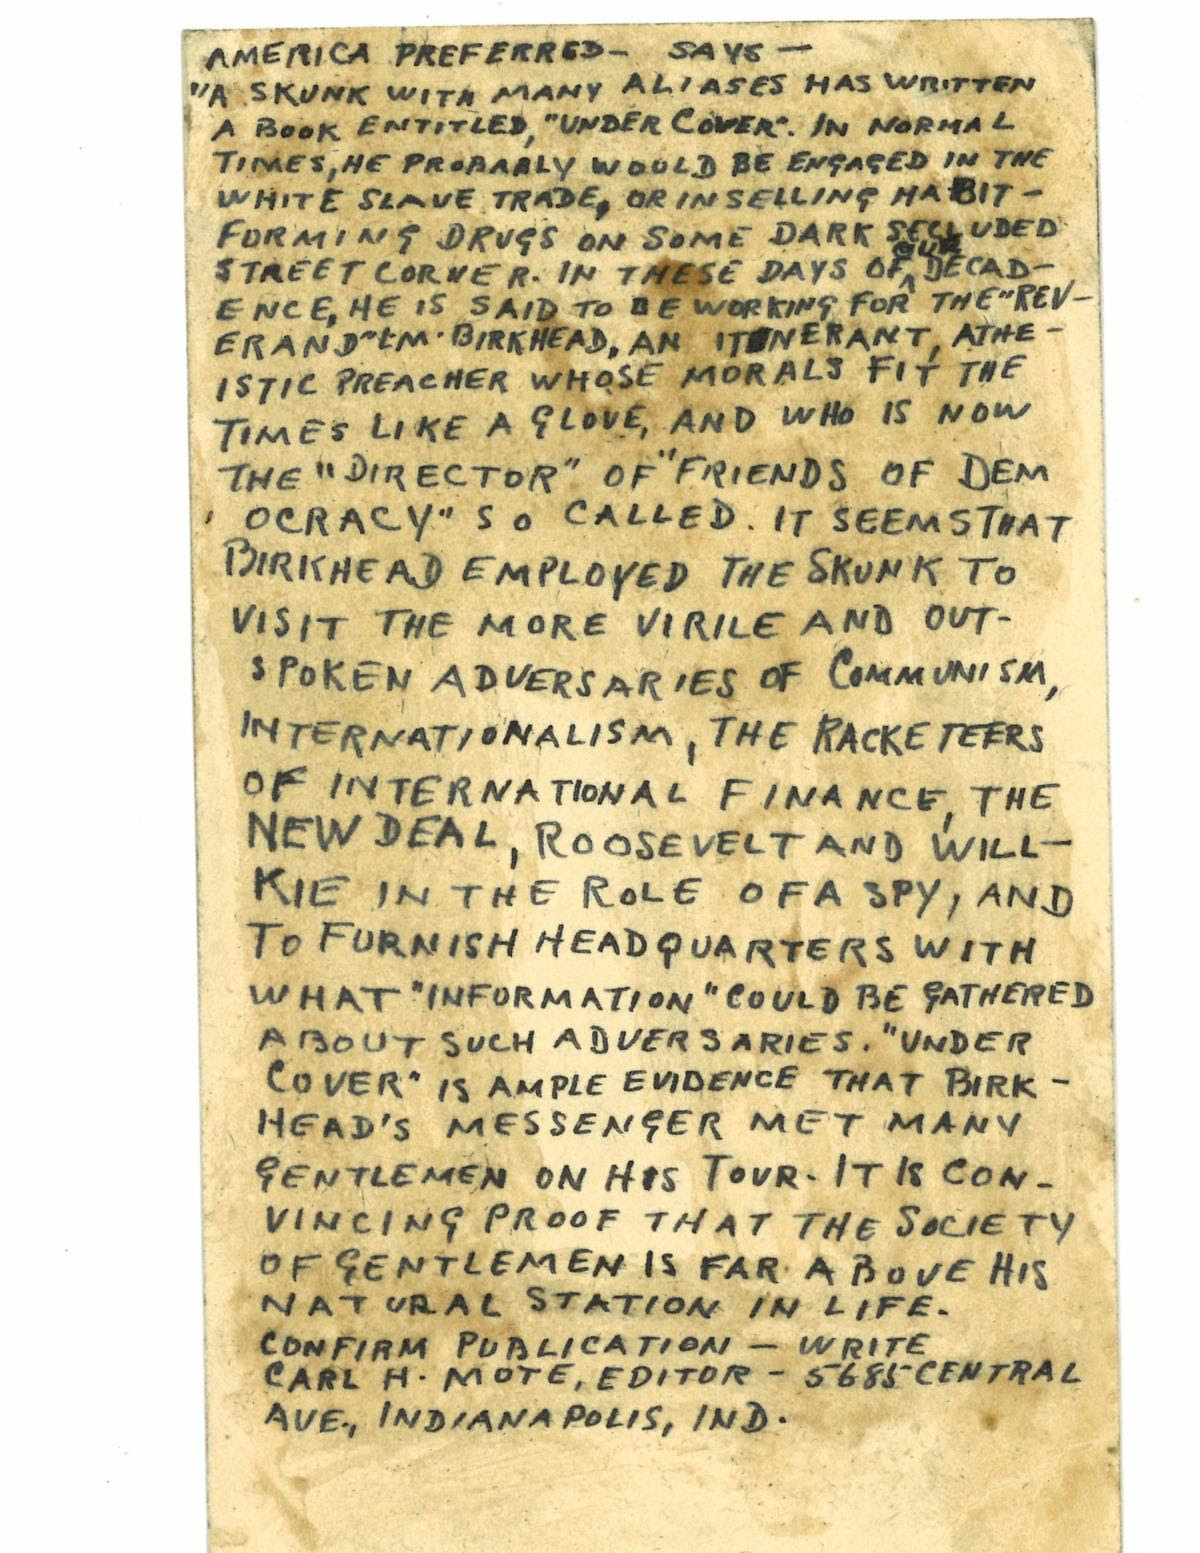 AMERICA PREFERRED- SAYS —
"A SKUNK WITH MANY ALIASES HAS WRITTEN
A BOOK ENTITLED, "UNDER COVER". IN NORMAL
TIMES, HE PROBABLY WOULD BE ENGAGED IN THE
WHITE SLAVE TRADE, OR IN SELLING HABIT-
FORMING DRUGS ON SOME DARK SECLUDED
STREET CORNER. IN THESE DAYS OF OUR DECAD-
ENCE, HE IS SAID TO BE WORKING FOR THE "REV-
ERAND" L M. BIRKHEAD, AN ITINERANT, ATHE-
ISTIC PREACHER WHOSE MORALS FIT THE
TIMES LIKE A GLOVE, AND WHO IS NOW
THE "DIRECTOR" OF "FRIENDS OF DEM
OCRACY" SO CALLED. IT SEEMS THAT
BIRKHEAD EMPLOYED THE SKUNK TO
VISIT THE MORE VIRILE AND OUT-
SPOKEN ADVERSARIES OF COMMUNISM,
INTERNATIONALISM, THE RACKETEERS
OF INTERNATIONAL FINANCE, THE
NEW DEAL, ROOSEVELT AND WILL-
KIE IN THE ROLE OF A SPY, AND
TO FURNISH HEADQUARTERS WITH
WHAT "INFORMATION" COULD BE GATHERED
ABOUT SUCH ADVERSARIES. "UNDER
COVER" IS AMPLE EVIDENCE THAT BIRK-
HEAD'S MESSENGER MET MANY
GENTLEMEN ON HIS TOUR. IT IS CON-
VINCING PROOF THAT THE SOCIETY
OF GENTLEMEN IS FAR ABOVE HIS
NATURAL STATION IN LIFE.
CONFIRM PUBLICATION — WRITE
CARL H. MOTE, EDITOR - 5685 CENTRAL
AVE., INDIANAPOLIS, IND.